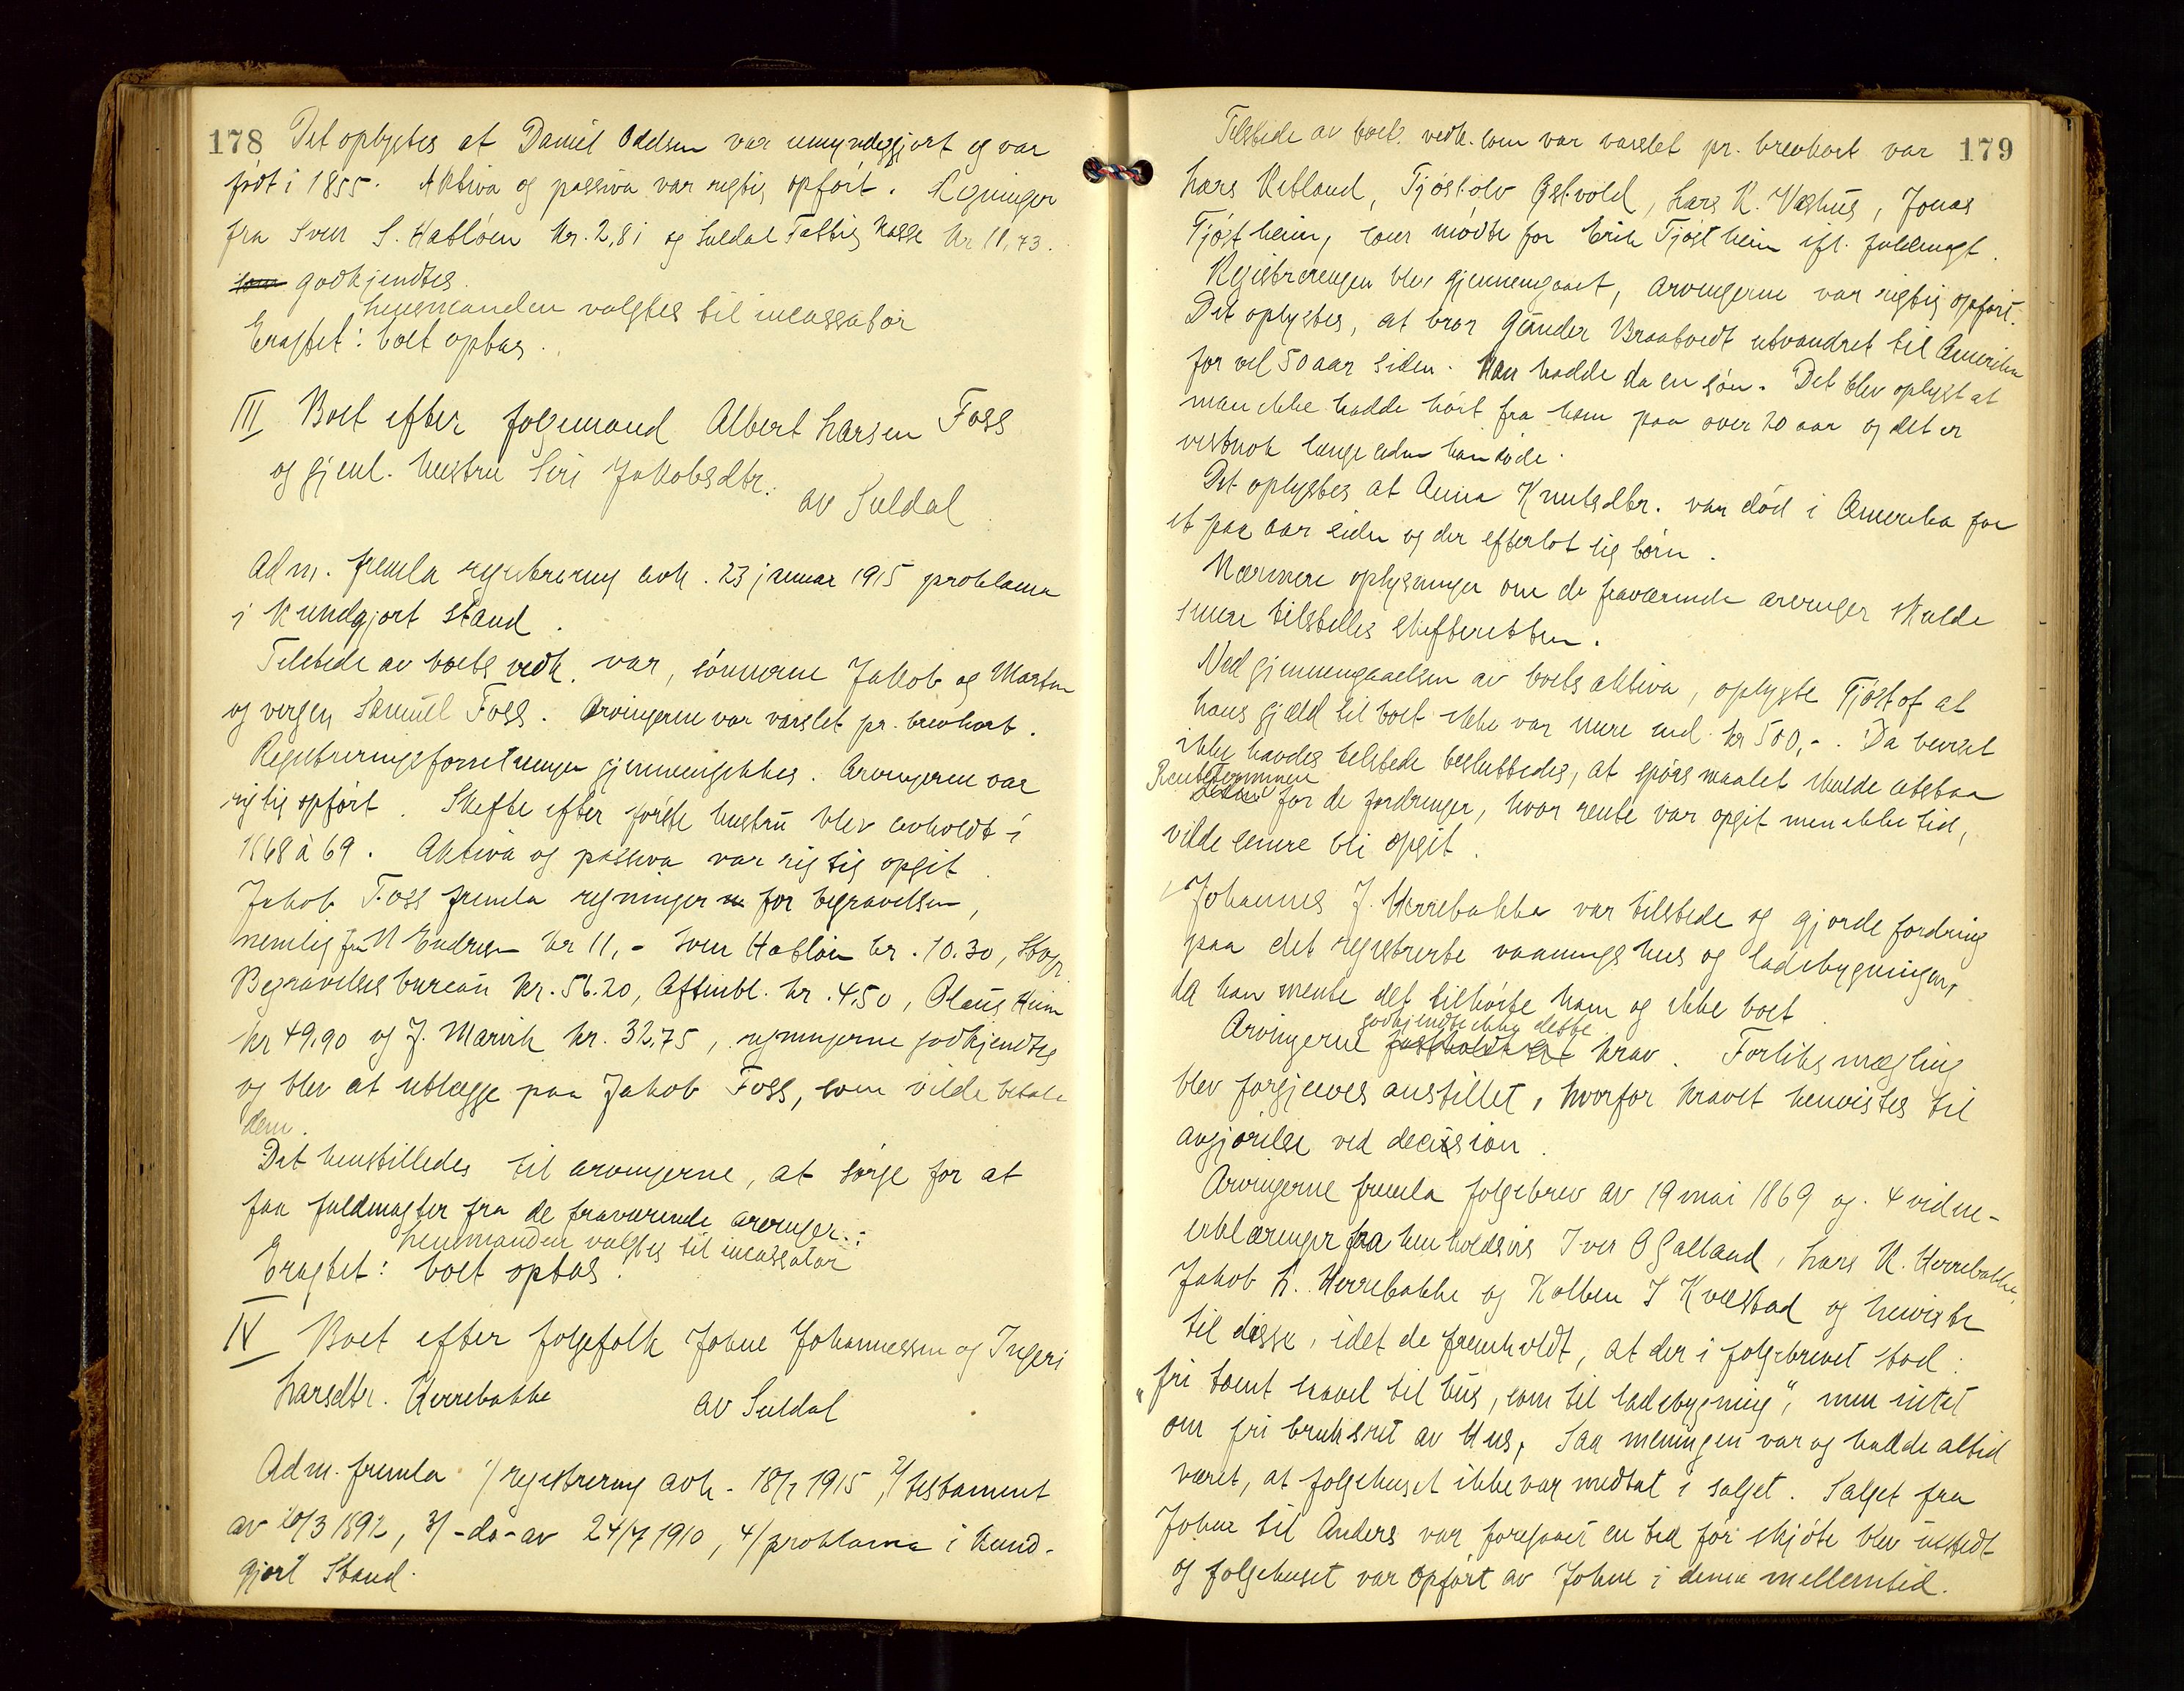 178 Det oplystes at Daniel Odelsen var umyndiggjort og var
født i 1855. Aktiva og passiva var rigtig opført. Regninger
fra Sven S. Habløen kr. 2,81 og Suldal Fattigkasse kr 11,73.
som godkjendtes.
lensmanden valgtes til incassator
Eragtet: boet optas.
III Boet efter folgemand Albert Larsen Foss
og gjenl. hustru Siri Jakobsdtr.
av Suldal
Adm. fremla registrering avh. 23 januar 1915 proklama
i kundgjort stand.
Tilstede av boets vedk. var, sønnerne Jakob og Martin
og vergen Samuel Foss. Arvingerne var varslet pr. brevkort.
Registreringsforretningen gjennemgikkes. Arvingerne var
rigtig opført. Skifte efter første hustru blev avholdt i
1868 à 69. Aktiva og passiva var rigtig opgit.
Jakob Foss fremla regninger for begravelsen,
nemlig fra N Endresen kr 11,- Sven Habløen kr. 10.30, Stvgr
Begravelsesbureau kr. 56.20, Aftenbl. kr. 4.50, Olaus Heim
kr 49.90 og J. Marvik kr. 32,75, regningerne godkjendtes
og blev at utlægge paa Jakob Foss, som vilde betale
dem.
Det henstilledes til arvingerne, at sørge for at
faa fuldmagter fra de fraværende arvinger.
lensmanden valgtes til incassator
Eragtet: boet optas.
IV Boet efter folgefolk Johne Johannessen og Ingeri
Larsdtr. Herrebakke av Suldal
Adm. fremla 1/ registrering avh. 18/1 1915, 2/ testament
av 20/3 1892, 3/ -do- av 24/7 1910, 4/ proklama i kund-
gjort stand.
Tilstede av boets vedk. som var varslet pr. brevkort var 179
Lars Vetland, Tjøstolv Østvold, Lars K. Vashus, Jonas
Tjøstheim, som mødte for Erik Tjøstheim ifl. fuldmagt.
Registreringen blev gjennemgaat, arvingerne var rigtig opført.
Det oplystes, at bror Gunder Braatvedt utvandret til Amerika
for vel 50 aar siden. Han hadde da en søn. Det blev oplyst at
man ikke hadde hørt fra ham paa over 20 aar og det er
vistnok længe siden han døde.
Det oplystes at Anna Knutsdtr. var død i Amerika for
et par aar siden og der efterlot sig børn.
Nærmere oplysninger om de fraværende arvinger skulde
senere tilstilles skifteretten.
Ved gjennemgaaelsen av boets aktiva, oplyste Tjøstof at
hans gjæld til boet ikke var mere end kr 500,-. Da beviset
ikke havdes tilstede besluttedes, at spørsmaalet skulde utstaa
Renteterminen
for de fordringer, hvor rente var opgit men ikke tid,
vilde senere bli opgit.
Johannes J. Herrebakke var tilstede og gjorde fordring
paa det registrerte vaaningshus og ladebygningen,
da han mente det tilhørte ham og ikke boet.
godkjendte ikke dette
Arvingerne fastholdt at krav. Forliksmægling
blev forgjæves anstillet, hvorfor kravet henvistes til
avgjørelse ved decision.
Arvingerne fremla folgebrev av 19 mai 1869 og 4 vidne-
erklæringer fra henholdsvis Iver O Galland, Lars K. Herrebakke,
Jakob L. Herrebakke og Kolben I Kvæstad og henviste
til disse, idet de fremholdt, at der i folgebrevet stod:
"fri tomt saavel til hus, som til ladebygning", men intet
om fri bruksret av hus, saa meningen var og hadde altid
været, at folgehuset ikke var medtat i salget. Salget fra
Johne til Anders var foregaaet en tid før skjøte blev utstedt
og folgehuset var opført av Johne i denne mellemtid.